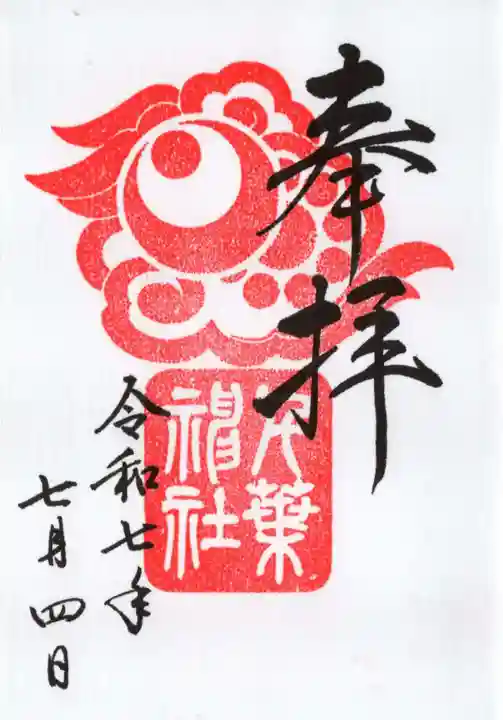 奉拝
千葉
神社
令和七年
七月四日